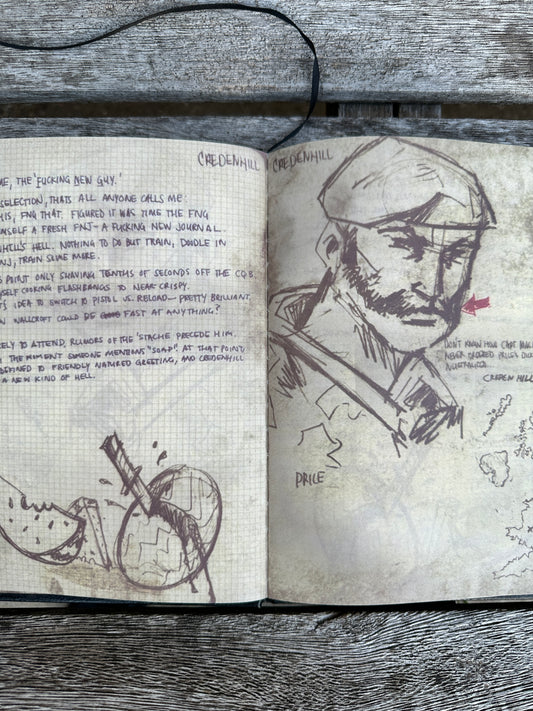 CREDENHILL
ME, THE 'FUCKING NEW GUY.'
SELECTION, THATS ALL ANYONE CALLS ME:
THIS, FNG THAT. FIGURED IT WAS TIME THE FNG
MYSELF A FRESH FNJ - A FUCKING NEW JOURNAL.
HILL'S HELL. NOTHING TO DO BUT TRAIN, DOODLE IN
FNJ, TRAIN SOME MORE.
POINT ONLY SHAVING TENTHS OF SECONDS OFF THE CQB
MYSELF COOKING FLASHBANGS TO NEAR CRISPY.
IDEA TO SWITCH TO PISTOL VS. RELOAD - PRETTY BRILLIANT.
WALLCROFT COULD BE FAST AT ANYTHING?
LIKELY TO ATTEND, RUMORS OF THE 'STACHE PRECEDE HIM.
THE MOMENT SOMEONE MENTIONS "SOAP". AT THAT POINT,
DEFINED TO FRIENDLY NATURED GREETING, AND CREDENHILL
A NEW KIND OF HELL.
CREDENHILL
DON'T KNOW HOW CAPT
NEVER
PRICE